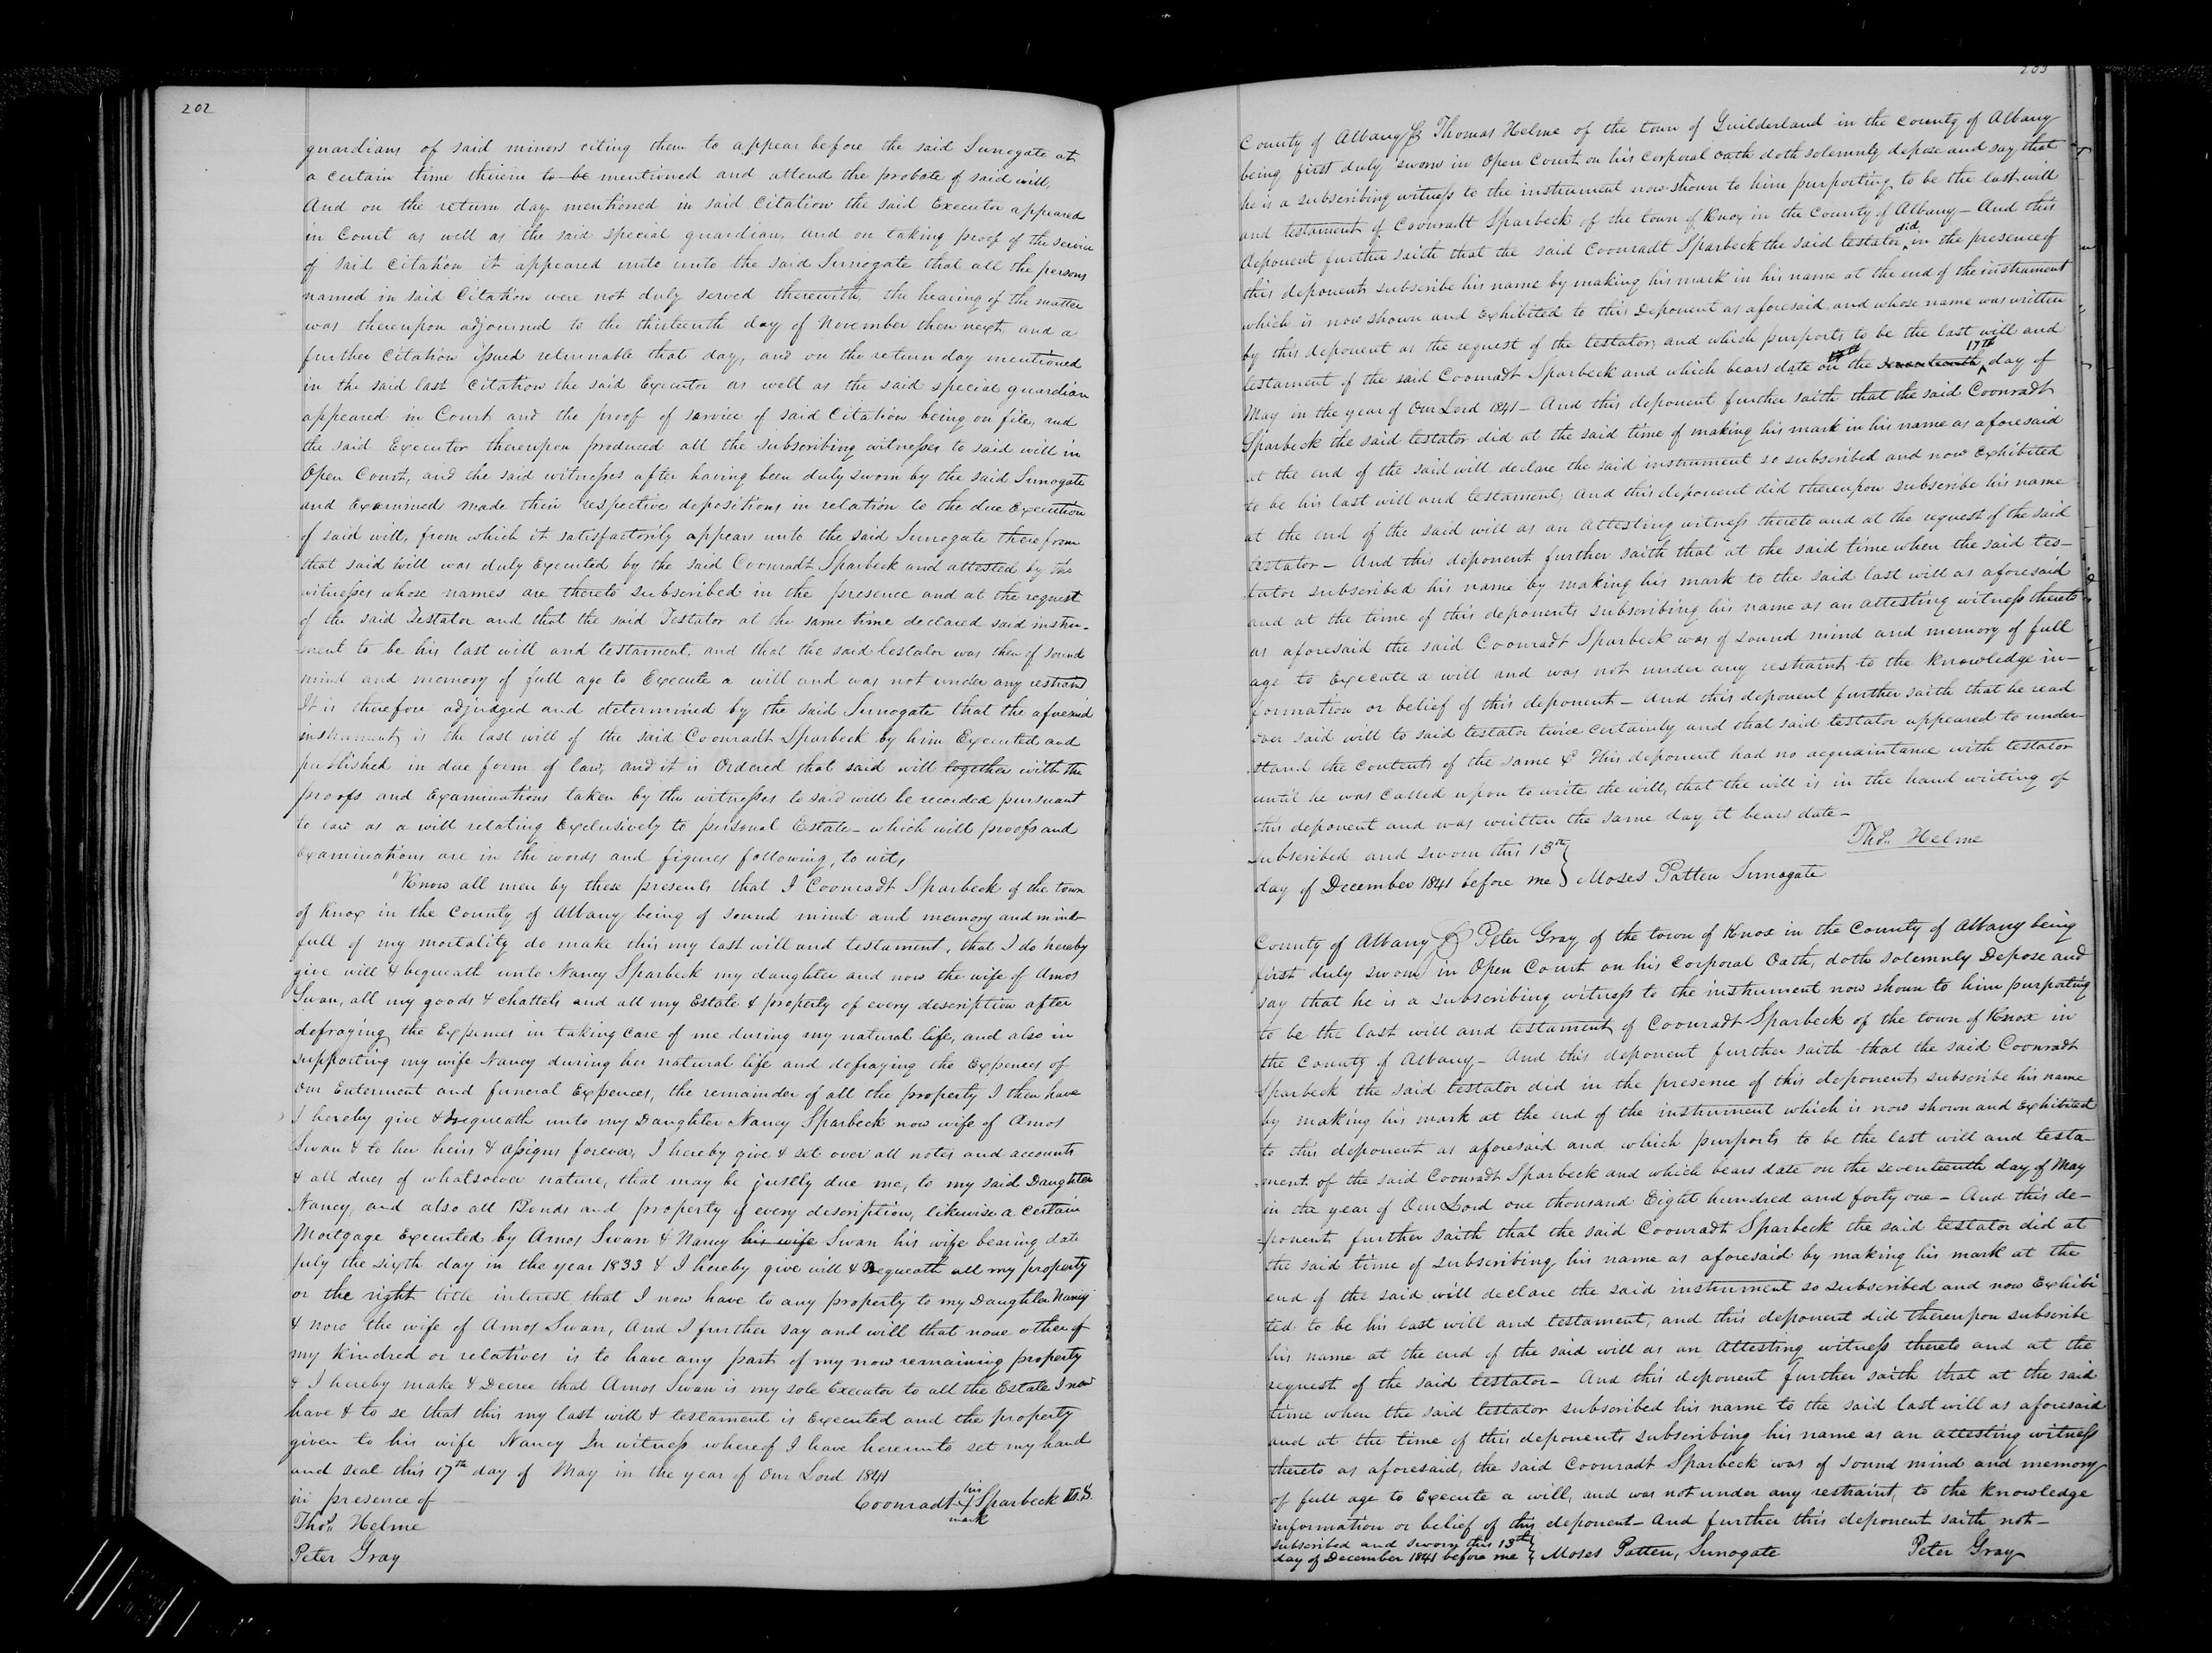 202
guardians of said minors citing them to appear before the said Surrogate at
a certain time therein to be mentioned and attend the probate of said will,
And on the return day mentioned in said Citation the said Executor appeared
in Court as well as the said special guardian, and on taking proof of the service
of said Citation it appeared unto unto the said Surrogate that all the persons
named in said Citation were not duly served therewith, the hearing of the matter
was thereupon adjourned to the thirteenth day of November then next, and a
further Citation issued returnable that day, and on the return day mentioned
in the said last Citation the said Executor as well as the said special guardian
appeared in Court and the proof of service of said Citation being on file, and
the said Executor thereupon produced all the subscribing witnesses to said will in
Open Court, and the said witnesses after having been duly sworn by the said Surrogate
and Examined made their respective depositions in relation to the due Execution
of said will, from which it satisfactorily appears unto the said Surrogate therefrom
that said will was duly Executed by the said Coonradt Sparbeck and attested by the
witnesses whose names are thereto subscribed in the presence and at the request
of the said Testator and that the said Testator at the same time declared said instru-
ment to be his last will and testament, and that the said testator was then of sound
mind and memory of full age to Execute a will and was not under any restraint
It is therefore adjudged and determined by the said Surrogate that the aforesaid
instrument is the last will of the said Coonradt Sparbeck by him Executed and
published in due form of law, and it is Ordered that said will together with the
proofs and Examinations taken by the witnesses to said will be recorded pursuant
to law as a will relating Exclusively to personal Estate - which will proofs and
Examinations are in the words and figures following, to wit,
"Know all men by these presents that I Coonradt Sparbeck of the town
of Knox in the County of Albany being of sound mind and memory and mind-
full of my mortality do make this my last will and testament, that I do hereby
give will & bequeath unto Nancy Sparbeck my daughter and now the wife of Amos
Swan, all my goods & chattels and all my Estate & property of every description after
defraying the Expences in taking care of me during my natural life, and also in
supporting my wife Nancy during her natural life and defraying the Expences of
our Enterment and funeral Expences, the remainder of all the property I then have
I hereby give & bequeath unto my Daughter Nancy Sparbeck now wife of Amos
Swan & to her heirs & assigns forever, I hereby give & set over all notes and accounts
& all dues of whatsoever nature, that may be justly due me, to my said Daughter
Nancy, and also all Bonds and property of every description, likewise a certain
Mortgage Executed by Amos Swan & Nancy his wife Swan his wife bearing date
July the sixth day in the year 1833 & I hereby give will & Bequeath all my property
or the right title interest that I now have to any property to my Daughter Nancy
& now the wife of Amos Swan, And I further say and will that none other of
my Kindred or relatives is to have any part of my now remaining property
& I hereby make & Decree that Amos Swan is my sole Executor to all the Estate I now
have & to se that this my last will & testament is Executed and the property
given to his wife Nancy In witness whereof I have hereunto set my hand
and seal this 17th day of May in the year of Our Lord 1841
in presence of
Coonradt his X mark Sparbeck L.S.
Thos. Helme
Peter Gray
203
County of Albany ss Thomas Helme of the town of Guilderland in the county of Albany
being first duly sworn in Open Court on his corporal oath doth solemnly depose and say that
he is a subscribing witness to the instrument now shown to him purporting to be the last will
and testament of Coonradt Sparbeck of the town of Knox in the County of Albany - And this
deponent further saith that the said Coonradt Sparbeck the said testator did in the presence of
this deponent subscribe his name by making his mark in his name at the end of the instrument
which is now shown and Exhibited to this Deponent as aforesaid and whose name was written
by this deponent as the request of the testator, and which purports to be the last will and
testament of the said Coonradt Sparbeck and which bears date on the seventeenth 17th day of
May in the year of Our Lord 1841 - And this deponent further saith that the said Coonradt
Sparbeck the said testator did at the said time of making his mark in his name as aforesaid
at the end of the said will declare the said instrument so subscribed and now Exhibited
to be his last will and testament, And this deponent did thereupon subscribe his name
at the end of the said will as an Attesting witness thereto and at the request of the said
testator - And this deponent further saith that at the said time when the said tes-
tator subscribed his name by making his mark to the said last will as aforesaid
and at the time of this deponents subscribing his name as an attesting witness thereto
as aforesaid the said Coonradt Sparbeck was of sound mind and memory of full
age to Execute a will and was not under any restraint to the knowledge in-
formation or belief of this deponent - And this deponent further saith that he read
over said will to said testator twice certainly and that said testator appeared to under-
stand the contents of the same & This deponent had no acquaintance with testator
until he was called upon to write the will, that the will is in the hand writing of
this deponent and was written the same day it bears date -
Thos. Helme
Subscribed and sworn this 13th
day of December 1841 before me } Moses Patten Surrogate
County of Albany ss Peter Gray of the town of Knox in the County of Albany being
first duly sworn in Open Court on his Corporal Oath, doth solemnly Depose and
say that he is a subscribing witness to the instrument now shown to him purporting
to be the last will and testament of Coonradt Sparbeck of the town of Knox in
the County of Albany - And this deponent further saith that the said Coonradt
Sparbeck the said testator did in the presence of this deponent subscribe his name
by making his mark at the end of the instrument which is now shown and Exhibited
to this deponent as aforesaid and which purports to be the last will and testa-
ment of the said Coonradt Sparbeck and which bears date on the seventeenth day of May
in the year of Our Lord one thousand Eight hundred and forty one - And this de-
ponent further saith that the said Coonradt Sparbeck the said testator did at
the said time of subscribing his name as aforesaid by making his mark at the
end of the said will declare the said instrument so subscribed and now Exhibi
ted to be his last will and testament, and this deponent did thereupon subscribe
his name at the end of the said will as an Attesting witness thereto and at the
request of the said testator - And this deponent further saith that at the said
time when the said testator subscribed his name to the said last will as aforesaid
and at the time of this deponents subscribing his name as an attesting witness
thereto as aforesaid, the said Coonradt Sparbeck was of sound mind and memory
of full age to Execute a will, and was not under any restraint, to the knowledge
information or belief of this deponent - And further this deponent saith not -
Subscribed and sworn this 13th
day of December 1841 before me } Moses Patten, Surrogate Peter Gray